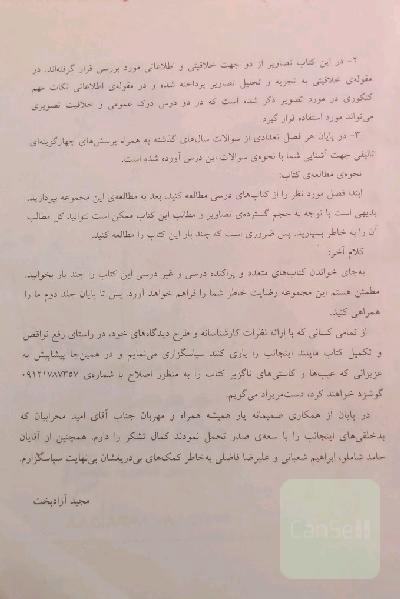 ۲- در این کتاب تصاویر از دو جهت خلاقیتی و اطلاعاتی مورد بررسی قرار گرفته‌اند. در
مقوله‌ی خلاقیتی به تجزیه و تحلیل تصاویر پرداخته شده و در مقوله‌ی اطلاعاتی نکات مهم
کنکوری در مورد تصویر ذکر شده است که در دو درس درک عمومی و خلاقیت تصویری
می‌تواند مورد استفاده قرار گیرد.
۳- در پایان هر فصل تعدادی از سوالات سال‌های گذشته به همراه پرسش‌های چهارگزینه‌ای
تالیفی جهت آشنایی شما با نحوه‌ی سوالات این درس آورده شده است.
نحوه‌ی مطالعه‌ی کتاب:
ابتدا فصل مورد نظر را از کتاب‌های درسی مطالعه کنید، بعد به مطالعه‌ی این مجموعه بپردازید.
بدیهی است با توجه به حجم گسترده‌ی تصاویر و مطالب این کتاب ممکن است نتوانید کل مطالب
آن را به خاطر بسپارید. پس ضروری است که چند بار این کتاب را مطالعه کنید.
کلام آخر:
به‌جای خواندن کتاب‌های متعدد و پراکنده درسی و غیر درسی این کتاب را چند بار بخوانید.
مطمئن هستم این مجموعه رضایت خاطر شما را فراهم خواهد آورد. پس تا پایان جلد دوم ما را
همراهی کنید.
از تمامی کسانی که با ارائه نظرات کارشناسانه و طرح دیدگاه‌های خود، در راستای رفع نواقص
و تکمیل کتاب مایلند اینجانب را یاری کنند سپاسگزاری می‌نمایم و در همین‌جا پیشاپیش به
عزیزانی که عیب‌ها و کاستی‌های ناگزیر کتاب را به منظور اصلاح با شماره‌ی ۰۹۱۲۱۷۸۷۳۵۷
گوشزد خواهند کرد، دست‌مریزاد می‌گویم.
در پایان از همکاری صمیمانه یار همیشه همراه و مهربان جناب آقای امید محرابیان که
بدخلقی‌های اینجانب را با سعه‌ی صدر تحمل نمودند کمال تشکر را دارم. همچنین از آقایان
حامد شاملو، ابراهیم شعبانی و علیرضا فاضلی به‌خاطر کمک‌های بی‌دریغشان بی‌نهایت سپاسگزارم.
مجید آزادبخت
CanSell